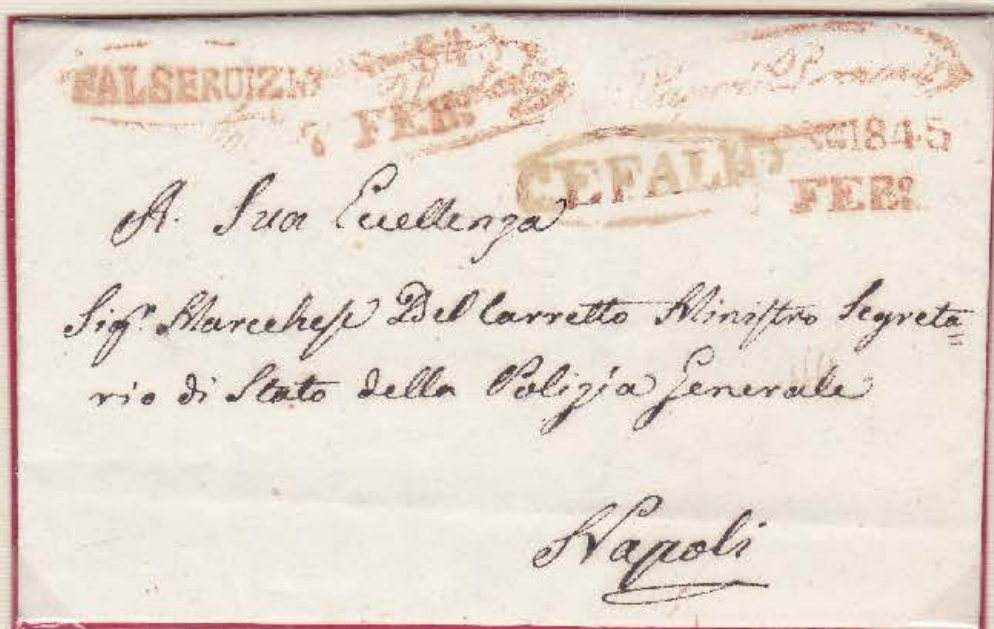 EALSERUIZIO
7 FEB:
1845
FEB:
CEFALU
A Sua Eccellenza
Sig.r Marcchese Del Carretto Ministro Segreta=
rio di Stato della Polizia Generale
Napoli